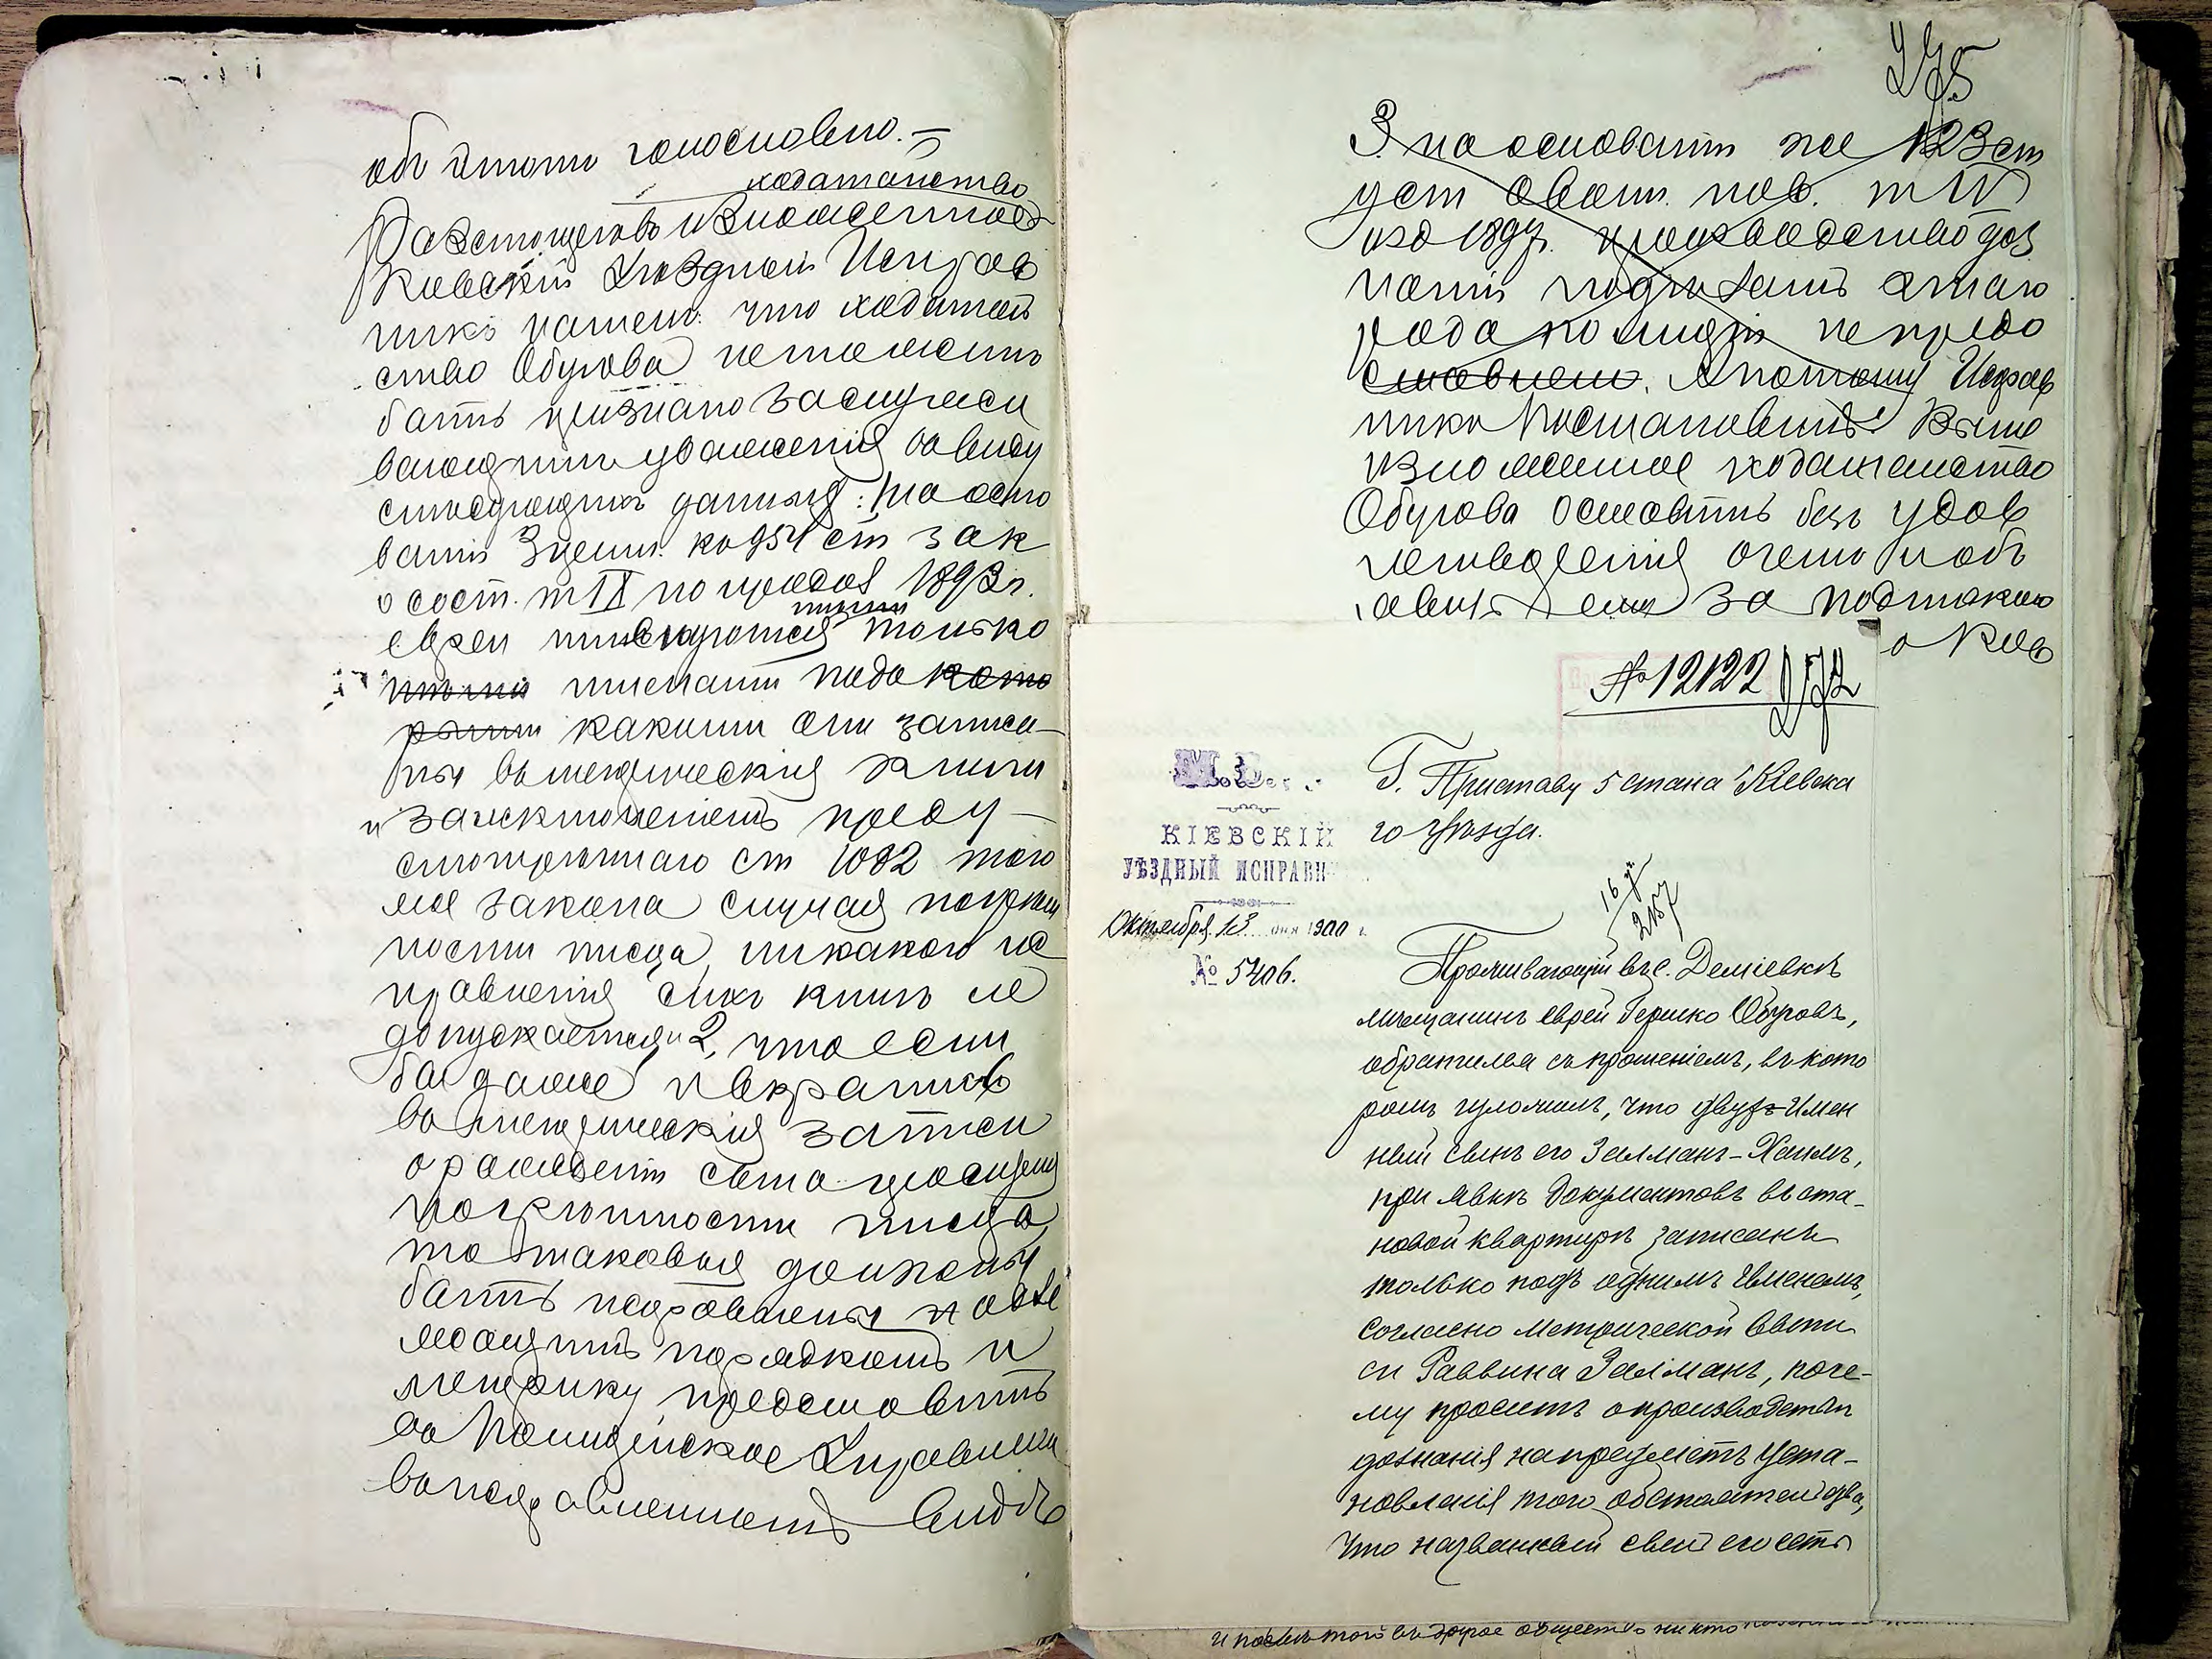 объ этомъ голословно. —
ходатайство
Разсмотревъ изложенное
Кіевскій Уѣздный Исправ
никъ нашелъ: что ходатай
ство Обурова не можетъ
быть признано заслужи
вающимъ уваженія въ виду
слѣдующихъ данныхъ: На осно
ваніи 3 прим. къ 954 ст зак
о сост. т IX по прод. 1893 г.
евреи именуются только
тѣми именами подъ кото
рыми какими они записа-
ны въ метрическія книги
и за исключеніемъ преду-
смотреннаго ст 1082 того
же закона случая погрѣш
ности писца, никакого ис
правленія сихъ книгъ не
допускается и 2, что если
бы даже и вкралась
въ метрическія записи
о рожденіи сына просителя
погрѣшность писца,
то таковыя должны
быть исправлены надле
жащимъ порядкомъ и
метрику представить
въ Полицейское Управленіе
въ исправленномъ видѣ
275
3. на основаніи же 123 ст
уст о воин. пов. т IV
изд 1897 г. производство доз
наній подобнаго
рода полиціи не предо
ставлено. А потому Исправ
никъ Постановилъ: Выше
изложенное ходатайство
Обурова оставить безъ удов
летворенія о чемъ и объ
явить ему за подпискою
№ 12122 272
М.В.
КІЕВСКІЙ
УѢЗДНЫЙ ИСПРАВН
Октября 13 дня 1900 г.
№ 5406.
Г. Приставу 5 стана Кіевска
го Уѣзда.
Проживающій въ с. Деміевкѣ
мѣщанинъ еврей Гершко Обуровъ,
обратился съ прошеніемъ, въ кото
ромъ изложилъ, что двухъ-имен
ный сынъ его Залманъ-Хаимъ,
при явкѣ документовъ въ ста-
новой квартирѣ записанъ
только подъ однимъ именемъ,
согласно метрической выпи
си Раввина Залманъ, поче-
му проситъ о производствѣ
дознанія на предметъ уста-
новленія того обстоятельства,
что названный сынъ его есть
и послѣ того въ другое общество никто